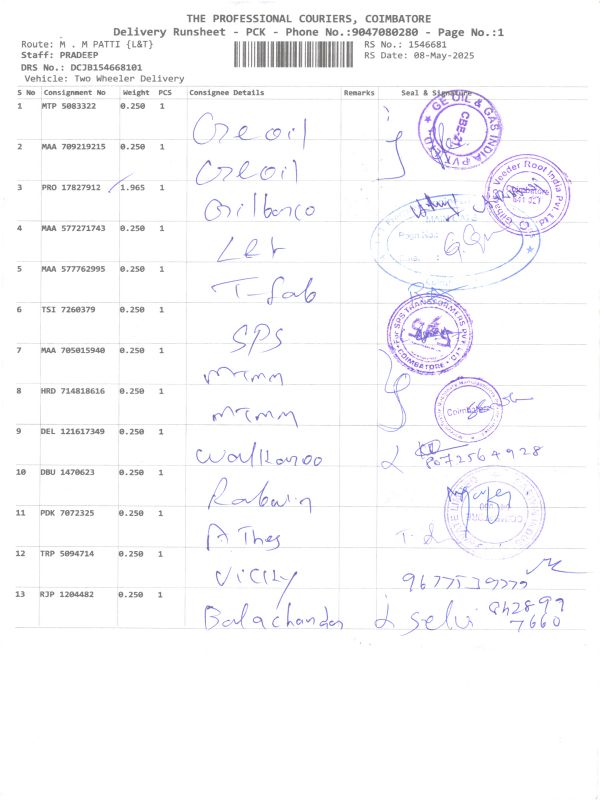 THE PROFESSIONAL COURIERS, COIMBATORE
Delivery Runsheet - PCK - Phone No.:9047080280 - Page No.:1
Route: M . M PATTI {L&T} RS No.: 1546681
Staff: PRADEEP RS Date: 08-May-2025
DRS No.: DCJB154668101
Vehicle: Two Wheeler Delivery
S No Consignment No Weight PCS Consignee Details Remarks Seal & Signature
1 MTP 5083322 0.250 1 Geoil
GE OIL & GAS INDIA PVT LTD
CBE-21
2 MAA 709219215 0.250 1 Geoil
3 PRO 17827912 1.965 1 Gilbarco
Gilbarco Veeder Root India Pvt. Ltd
Coimbatore
641 021
4 MAA 577271743 0.250 1 L&T
5 MAA 577762995 0.250 1 T-fab
6 TSI 7260379 0.250 1 SPS
For SPS TRANSFORMERS PVT LTD
COIMBATORE
7 MAA 705015940 0.250 1
8 HRD 714818616 0.250 1
Coimbatore
9 DEL 121617349 0.250 1 Walkaroo 8072564928
10 DBU 1470623 0.250 1
11 PDK 7072325 0.250 1
12 TRP 5094714 0.250 1
13 RJP 1204482 0.250 1 Balachander selvi
7660